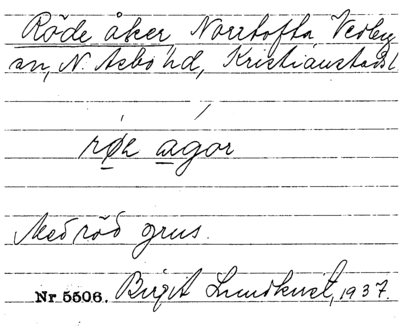 Röde åker Norrtofta Vedby
sn, N. Åsbo hd, Kristianstads l
røe agor
Med röd grus.
Nr 5506. Birgit Lundkvist, 1937.